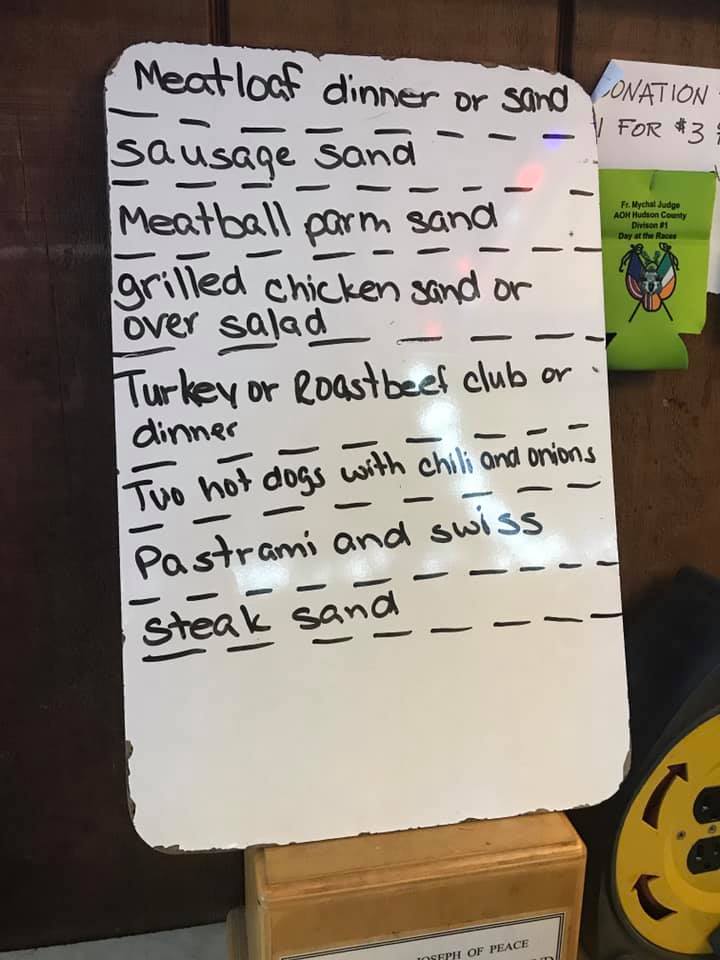 Meatloaf dinner or sand
sausage sand
Meatball parm sand
grilled chicken sand or
over salad
Turkey or Roastbeef club or
dinner
Two hot dogs with chili and onions
Pastrami and swiss
steak sand
DONATION
FOR $3
Fr. Mychal Judge
AOH Hudson County
Divison #1
Day at the Races
JOSEPH OF PEACE